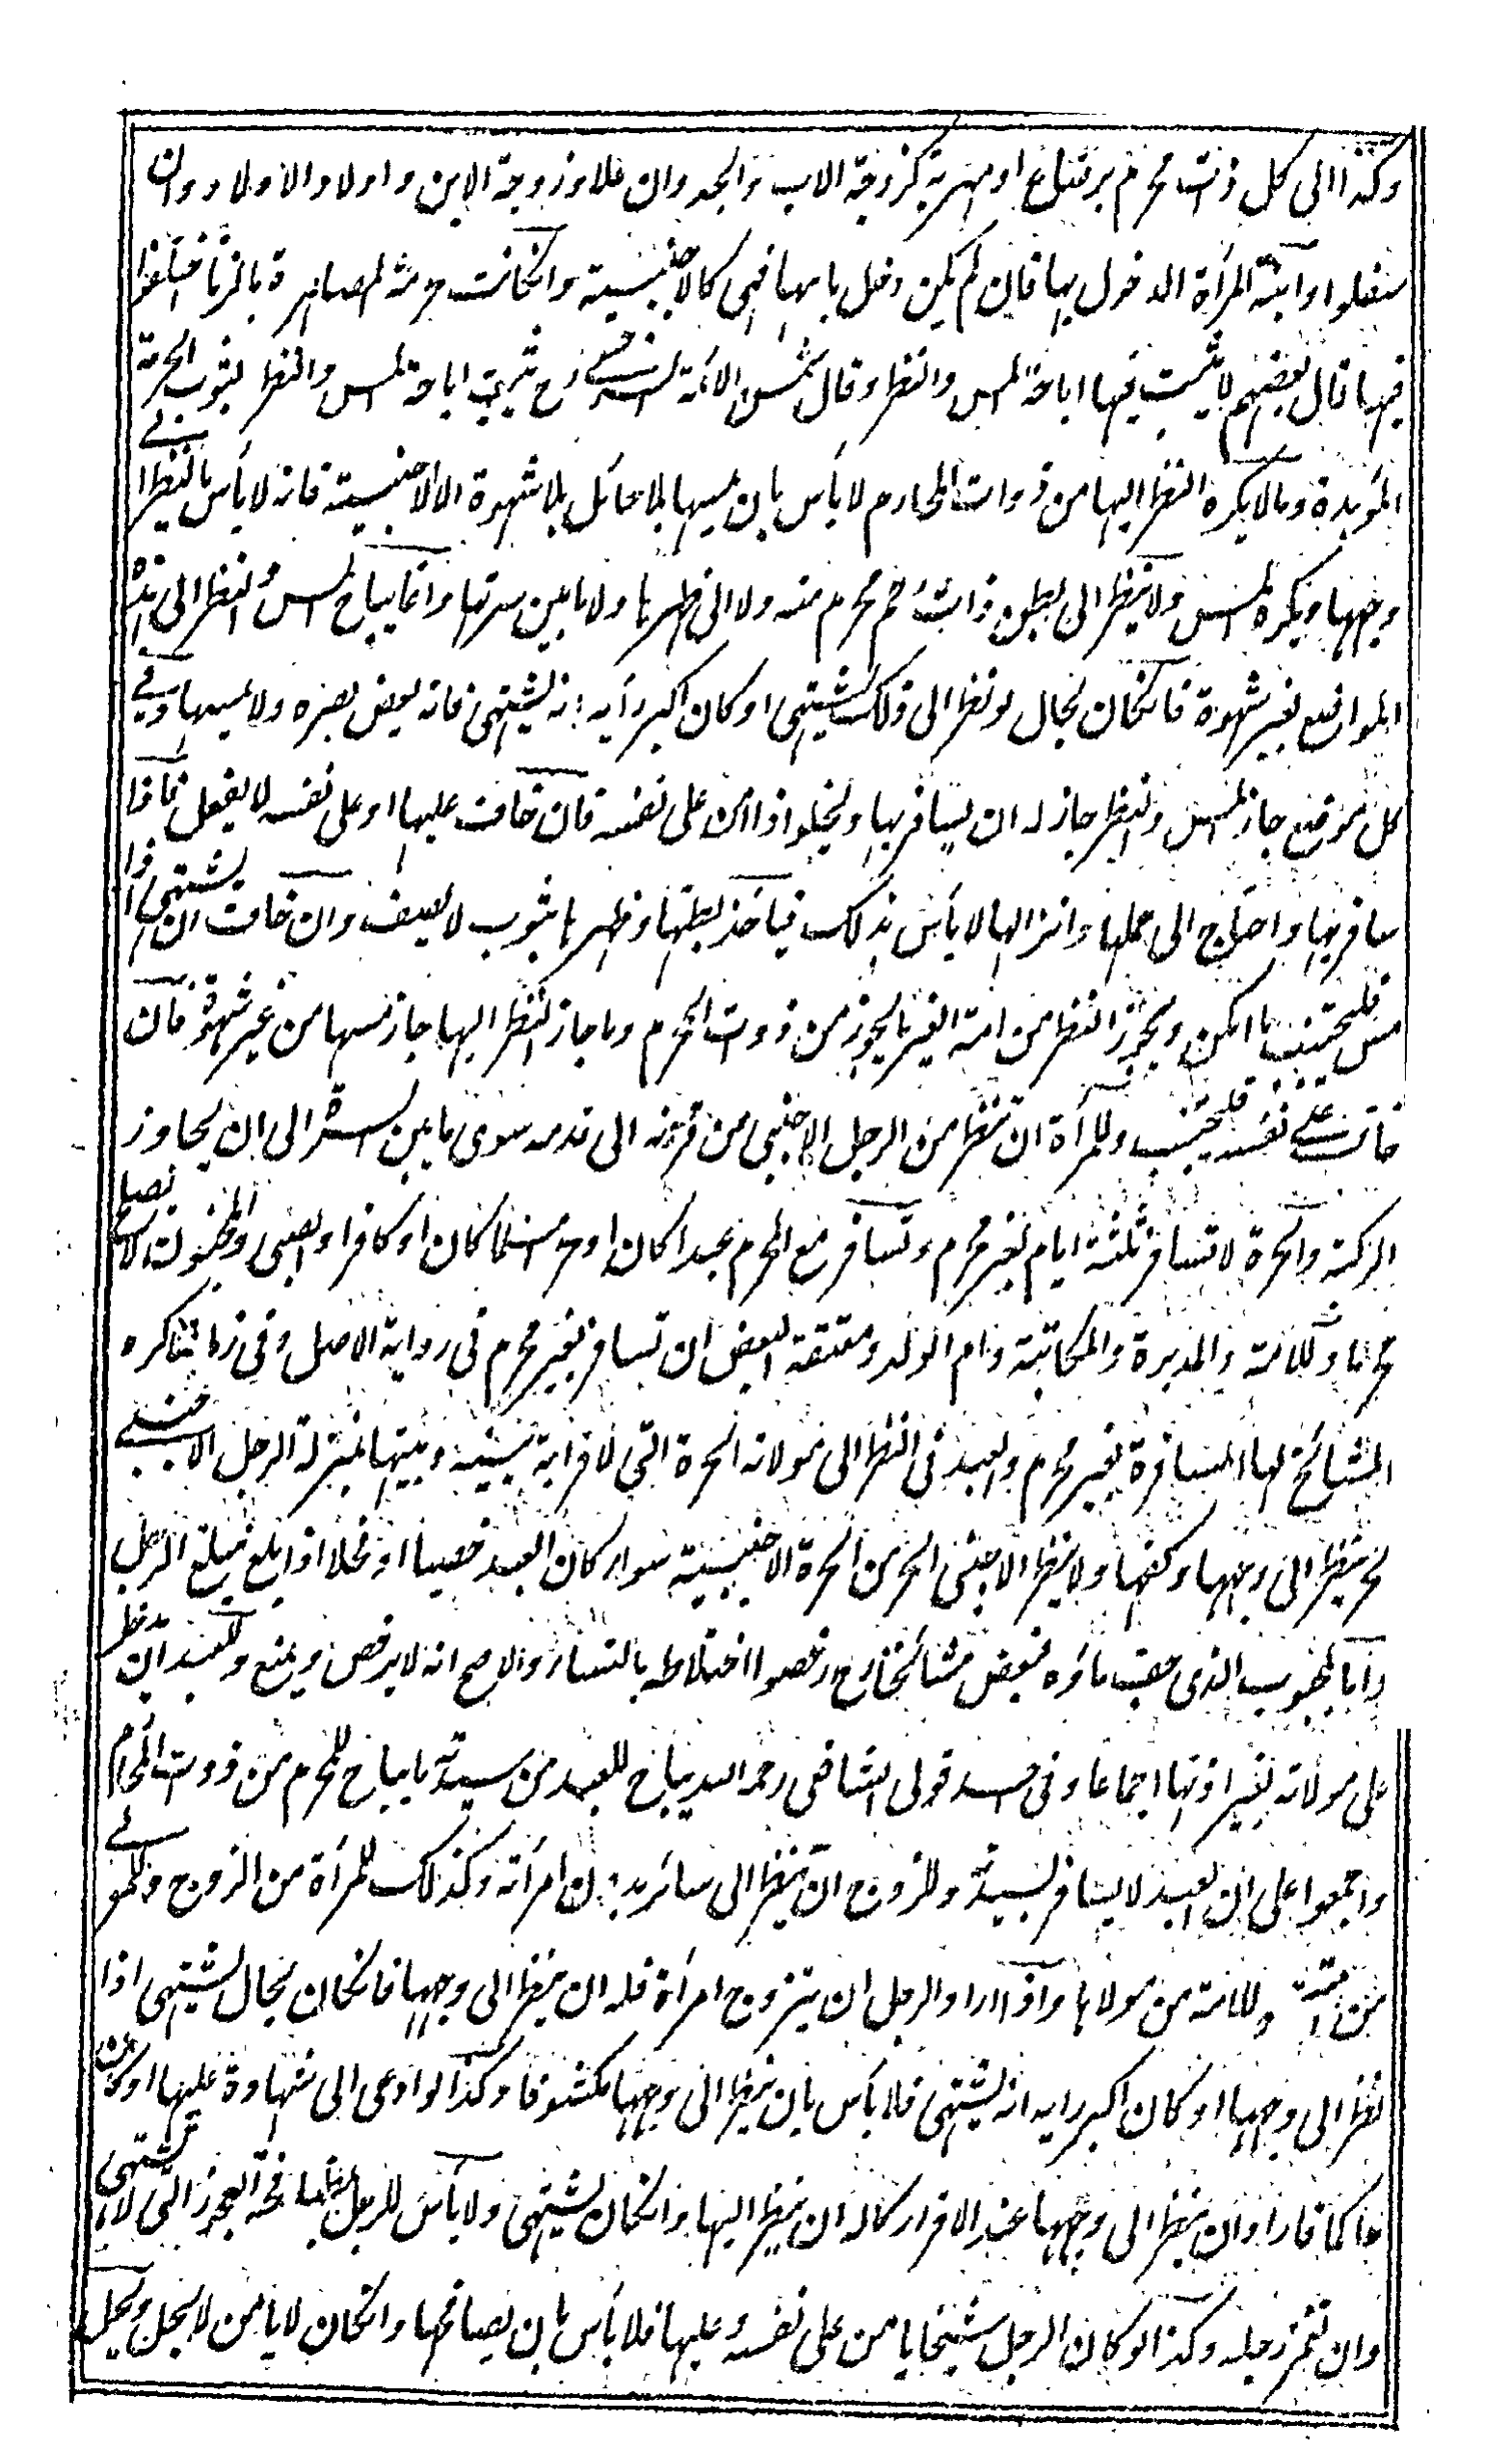 وكذا الى كل ذات محرم برضاع او صهرية كزوجة الاب والجد وان علا وزوجة الابن واولاد الاولاد وان
سفلوا وابنة المرأة المدخول بها فان لم يكن دخل بامها فهى كالاجنبية وانكانت حرمة المصاهرة بالزنا اختلفوا
فيها قال بعضهم لا يثبت فيها اباحة المس والنظر وقال شمس الائمة السرخسى رح تثبت اباحة المس والنظر لثبوت الحرمة
المؤبدة وما لا يكره النظر اليها من ذوات المحارم لا بأس بان يمسها بلا حائل بلا شهوة الا الاجنبية فانه لا بأس بالنظر الى
وجهها ويكره المس ولا ينظر الى بطن ذات رحم محرم منه ولا الى ظهرها ولا ما بين سرتها وانما يباح المس والنظر الى هذه
المواضع بغير شهوة فانكان بحال لو نظر الى ذلك يشتهى او كان اكبر رأيه انه يشتهى فانه يغض بصره ولا يمسها وفى
كل موضع جاز المس والنظر جاز له ان يسافر بها ويخلو اذا امن على نفسه فان خاف عليها او على نفسه لا يفعل فاذا
سافر بها واحتاج الى حملها وانزالها لا بأس بذلك فياخذ بطنها وظهرها بثوب لا يصف وان خاف ان يشتهى اذا
مس فليجتنب ما امكن ويجوز النظر من امة الغير ما يجوز من ذوات المحرم وما جاز النظر اليها جاز مسها من غير شهوة فان
خاف على نفسه فليجتنب وللمرأة ان تنظر من الرجل الاجنبى من قرنه الى قدمه سوى ما بين السرة الى ان يجاوز
الركبة والحرة لا تسافر ثلثة ايام بغير محرم وتسافر مع المحرم عبدا كان او حر مسلما كان او كافرا والصبى والمجنون لا يصلح
محرما وللامة والمدبرة والمكاتبة وام الولد ومعتقة البعض ان تسافر بغير محرم فى رواية الاصل وفى زماننا كره
المشائخ لها المسافرة بغير محرم والعبد فى النظر الى مولاته الحرة التى لا قرابة بينه وبينها بمنزلة الرجل الاجنبى
الحر ينظر الى وجهها وكفها ولا ينظر الاجنبى الحر من الحرة الاجنبية سواء كان العبد خصيا او فحلا اذا بلغ مبلغ الرجل
واما المجبوب الذى جف ماؤه فبعض مشائخنا رح رخصوا اختلاطه بالنساء والاصح انه لا يرخص ويمنع وللعبد ان يدخل
على مولاته بغير اذنها اجماعا وفى احد قولى الشافعى رحمه الله يباح للعبد من سيدته ما يباح للمحرم من ذوات المحارم
واجمعوا على ان العبد لا يسافر بسيدته وللزوج ان ينظر الى سائر بدن امرأته وكذلك للمرأة من الزوج وللمولى
من امته وللامة من مولاها واذا اراد الرجل ان يتزوج امرأة فله ان ينظر الى وجهها فانكان بحال يشتهى اذا
نظر الى وجهها او كان اكبر رايه انه يشتهى فلا بأس بان ينظر الى وجهها مكشوفا وكذا لو ادعى الى شهادة عليها او كان
حاكما فاراد ان ينظر الى وجهها عند الاقرار كان له ان ينظر اليها وانكان يشتهى ولا بأس للرجل بمصافحة العجوز التى لا تشتهى
وان تغمز رجله وكذا لو كان الرجل شيخا يامن على نفسه وعليها فلا بأس بان يصافحها وانكان لا يأمن لا يحل ويحل